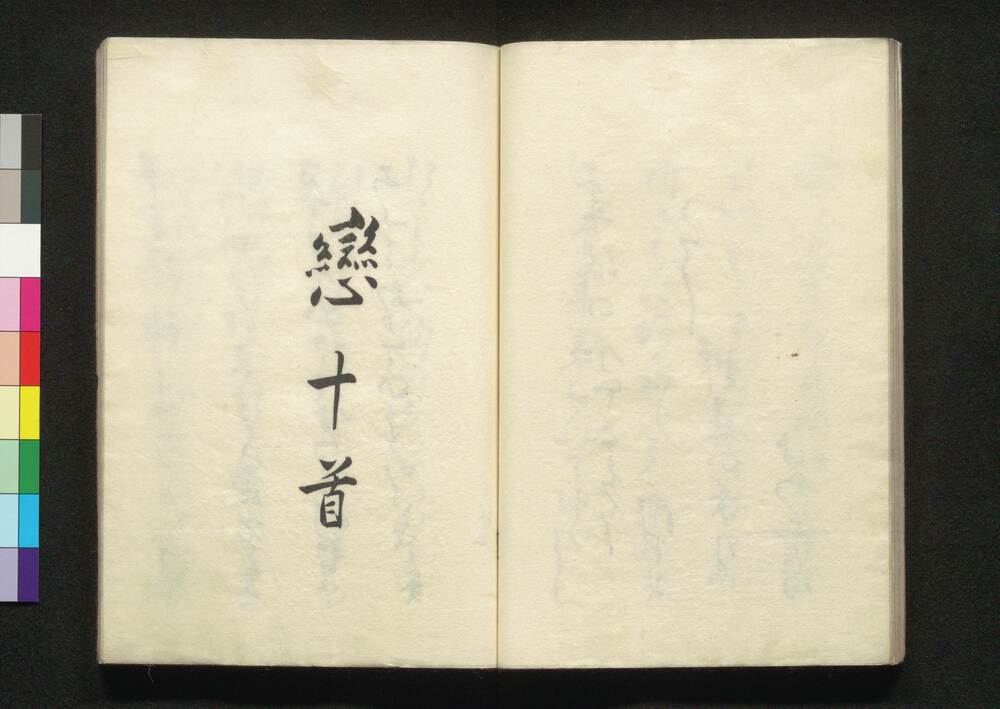 戀十首